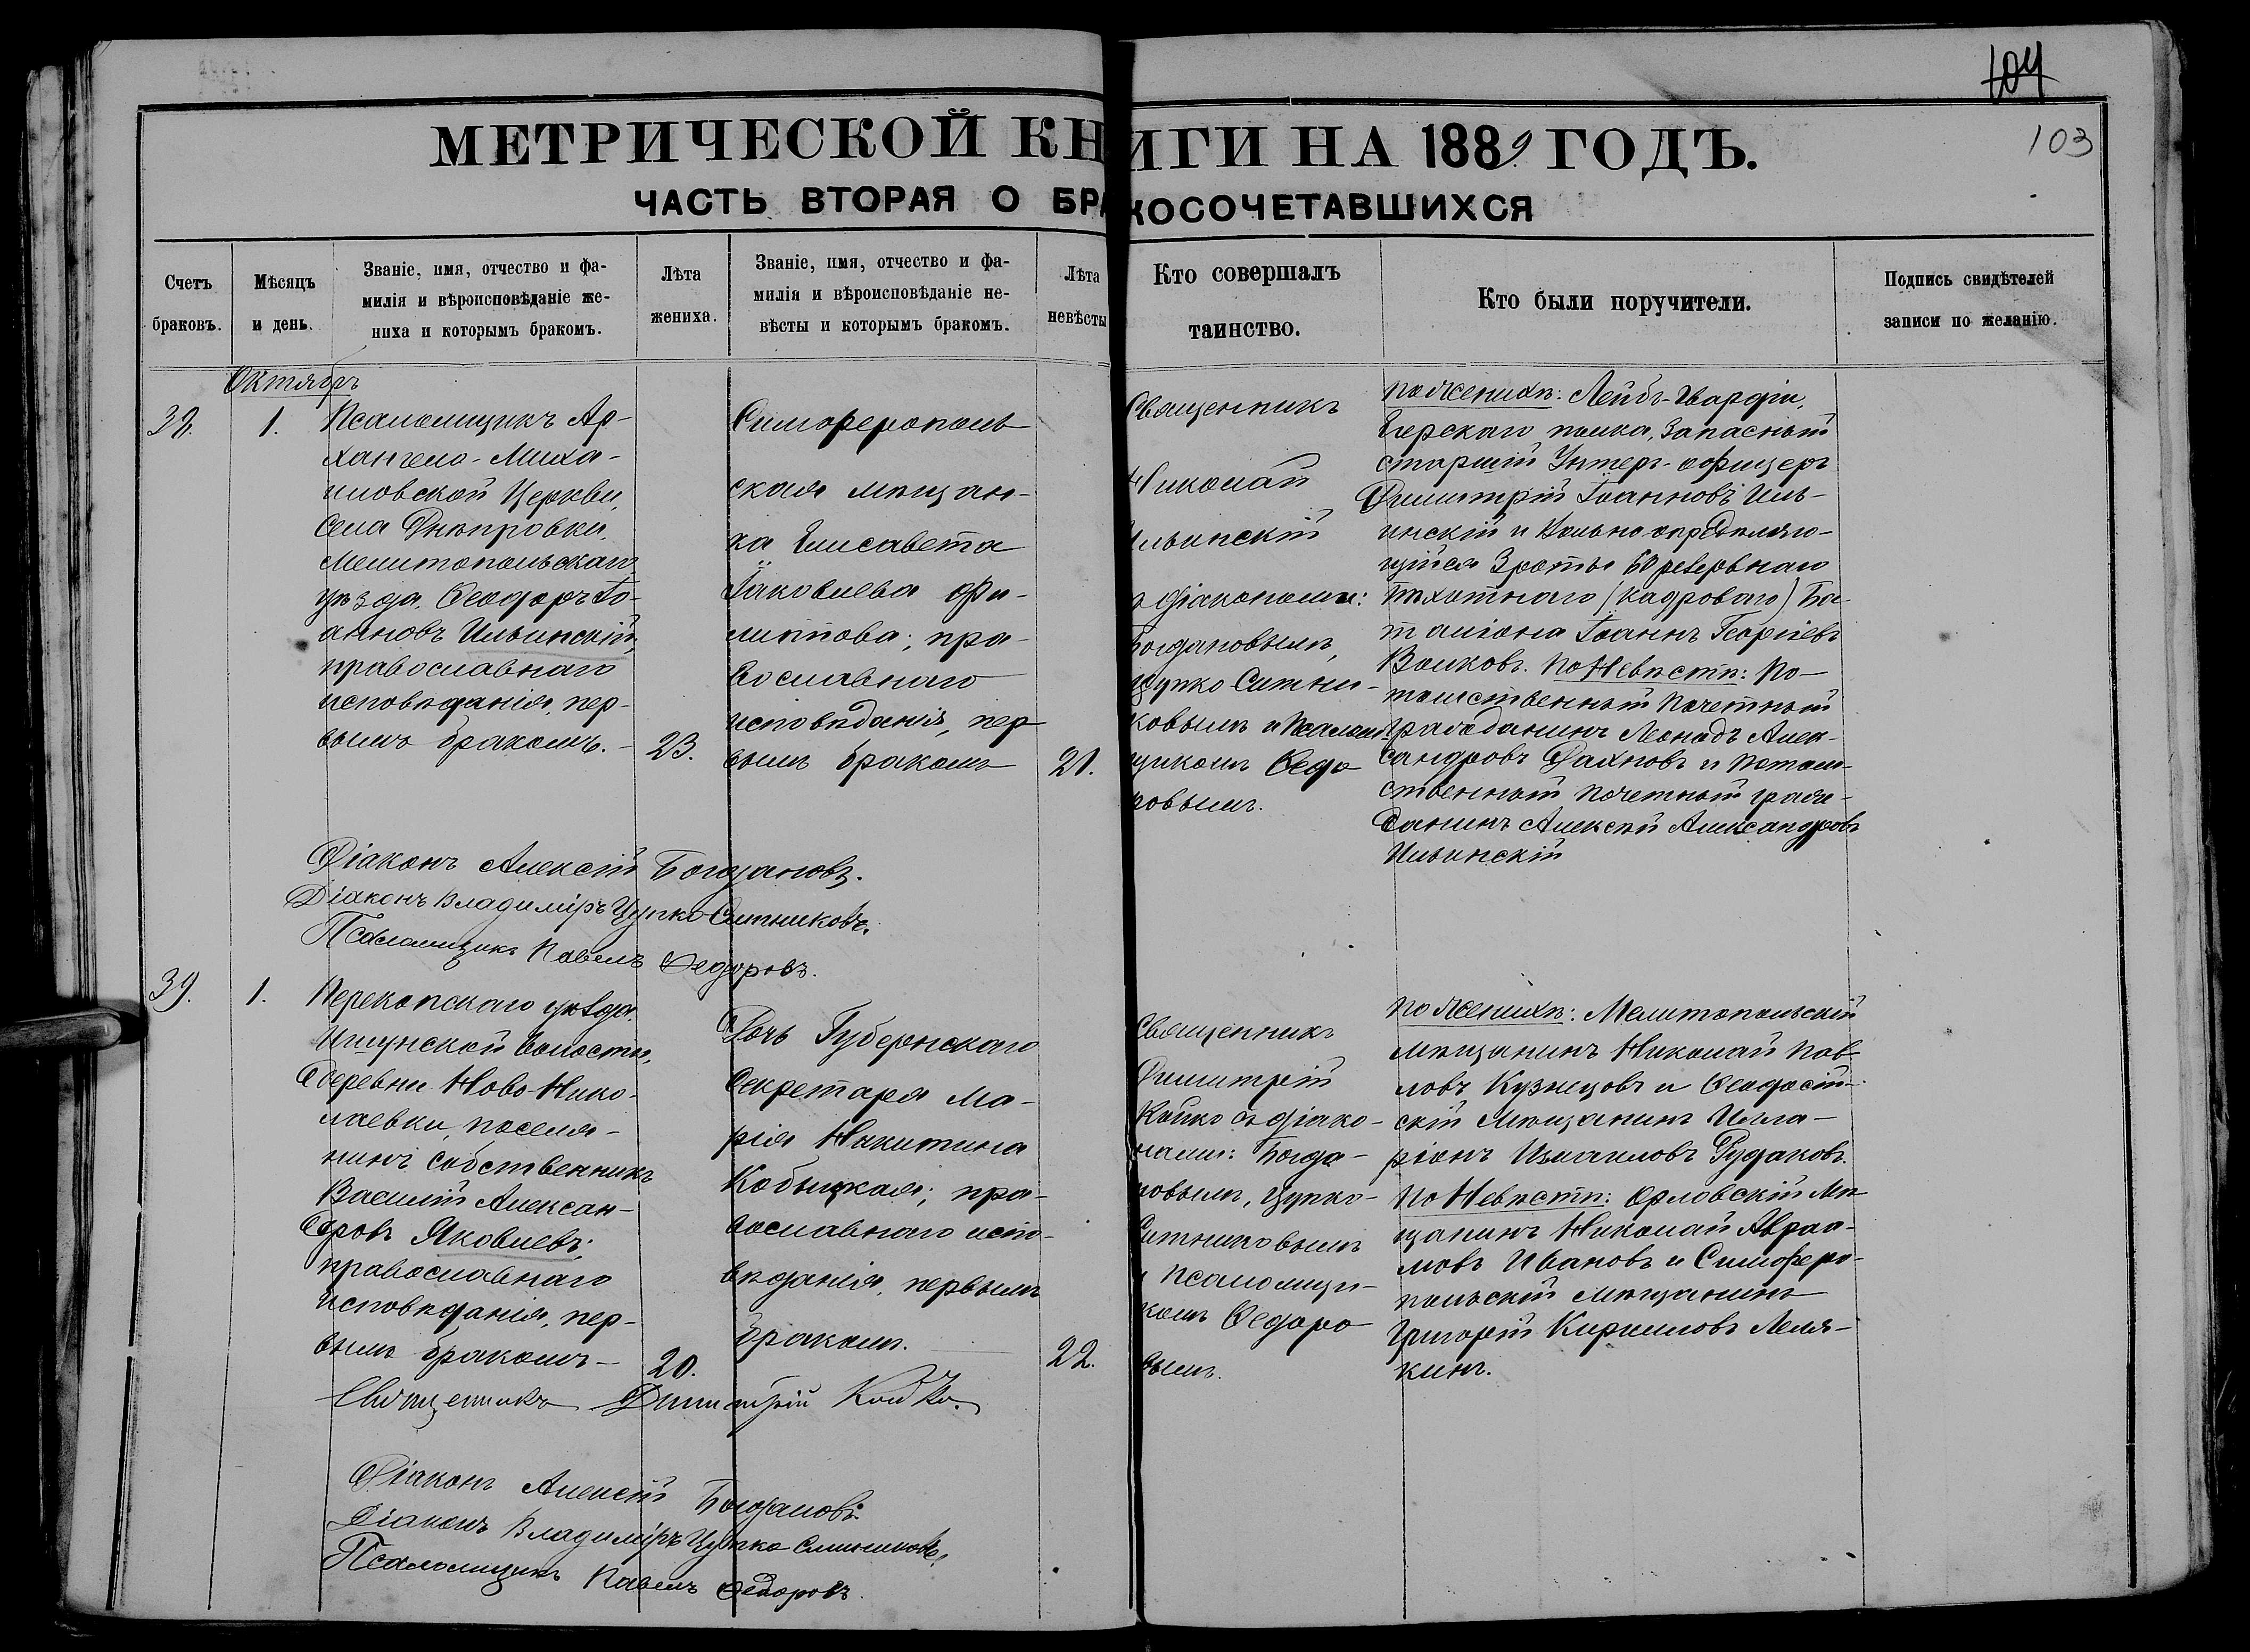 104
103
МЕТРИЧЕСКОЙ КНИГИ НА 1889 ГОДЪ.
ЧАСТЬ ВТОРАЯ О БРАКОСОЧЕТАВШИХСЯ
Счетъ
браковъ.
Мѣсяцъ
и день.
Званіе, имя, отчество и фа-
милія и вѣроисповѣданіе же-
ниха и которымъ бракомъ.
Лѣта
жениха.
Званіе, имя, отчество и фа-
милія и вѣроисповѣданіе не-
вѣсты и которымъ бракомъ.
Лѣта
невѣсты
Кто совершалъ
таинство.
Кто были поручители.
Подпись свидѣтелей
записи по желанію.
Октябрь
38.
1.
Псаломщикъ Ар-
хангело-Миха-
иловской Церкви,
села Днѣпровки,
Мелитопольскаго
уѣзда, Ѳеодоръ Іо-
анновъ Ильинскій,
православнаго
исповѣданія, пер-
вымъ бракомъ.-
23.
Симферополь
ская мѣщан-
ка Елисавета
Іаковлева Фи-
липпова; пра-
вославнаго
исповѣданія, пер
вымъ бракомъ
21.
Священникъ
Николай
Ильинскій
съ діаконами:
Богдановымъ,
Цупко Ситни-
ковымъ и Псалом
щикомъ Ѳедо
ровымъ.
по Женихѣ: Лейбъ-Гвардіи,
Егерскаго полка, Запасный
старшій Унтеръ-офицеръ
Димитрій Іоанновъ Иль-
инскій и Вольноопредѣляю-
щійся 3 роты 60 резервнаго
пѣхотнаго (кадроваго) Ба-
таліона Іоаннъ Георгіевъ
Волковъ. По Невѣстѣ: По-
томственный Почетный
гражданинъ Леонидъ Алек-
сандровъ Дахновъ и Потом-
ственный Почетный граж-
данинъ Алексѣй Александровъ
Ильинскій
Діаконъ Алексій Богдановъ.
Діаконъ Владиміръ Цупко-Ситниковъ.
Псаломщикъ Павелъ Ѳедоровъ.
39.
1.
Перекопскаго уѣзда,
Ишунской волости,
деревни Ново-Нико-
лаевки, поселя-
нинъ собственникъ
Василій Алексан-
дровъ Яковлевъ;
православнаго
исповѣданія, пер-
вымъ бракомъ-
20.
Дочь Губернскаго
Секретаря Ма-
рія Никитина
Кобыцкая; пра-
вославнаго испо-
вѣданія, первымъ
бракомъ.
22.
Священникъ
Димитрій
Койко съ діако-
нами: Богда-
новымъ, Цупко-
Ситниковымъ
и псаломщи-
комъ Ѳедоро
вымъ.
по Женихѣ: Мелитопольскій
мѣщанинъ Николай Пав-
ловъ Кузнецовъ и Ѳеодосій-
скій мѣщанинъ Илла-
ріонъ Измаиловъ Рудаковъ.
По Невѣстѣ: Орловскій Мѣ
щанинъ Николай Авраа-
мовъ Ивановъ и Симферо-
польскій мѣщанинъ
Григорій Кирилловъ Леля-
кинъ.
Священникъ Димитрій Койко.
Діаконъ Алексій Богдановъ.
Діаконъ Владиміръ Цупко Ситниковъ.
Псаломщикъ Павелъ Ѳедоровъ.